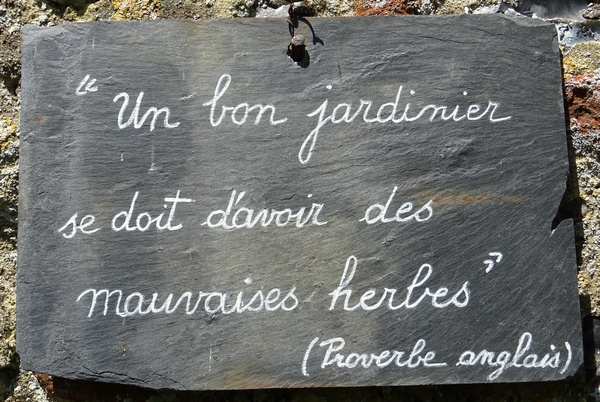 « Un bon jardinier
se doit d'avoir des
mauvaises herbes »
(Proverbe anglais)